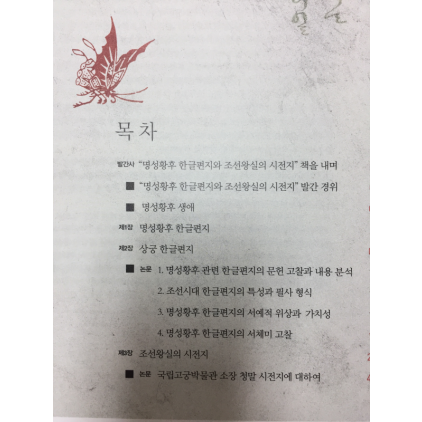 목차
발간사 “명성황후 한글편지와 조선왕실의 시전지” 책을 내며
■ “명성황후 한글편지와 조선왕실의 시전지” 발간 경위
■ 명성황후 생애
제1장 명성황후 한글편지
제2장 상궁 한글편지
■ 논문 1. 명성황후 관련 한글편지의 문헌 고찰과 내용 분석
2. 조선시대 한글편지의 특성과 필사 형식
3. 명성황후 한글편지의 서예적 위상과 가치성
4. 명성황후 한글편지의 서체미 고찰
제3장 조선왕실의 시전지
■ 논문 국립고궁박물관 소장 청말 시전지에 대하여